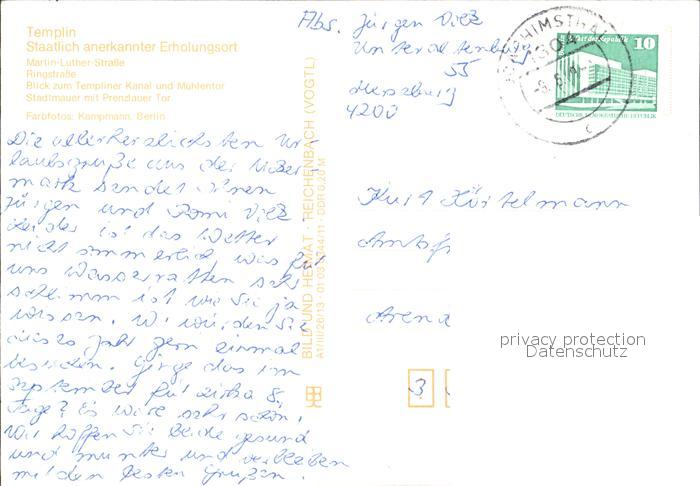 Templin
Staatlich anerkannter Erholungsort
Martin-Luther-Straße
Ringstraße
Blick zum Templiner Kanal und Mühlentor
Stadtmauer mit Prenzlauer Tor
Farbfotos: Kampmann, Berlin
Die allerherzlichsten Ur-
laubsgrüße aus der Ucker-
mark sendet Ihnen
Jürgen und
Leider ist das Wetter
nicht sommerlich, was für
uns Wasserratten sehr
schlimm ist wie Sie ja
wissen. Wir würden Sie
dieses Jahr gern einmal
besuchen. Ginge das im
September für zirka 8
Tage? Es wäre sehr schön.
Wir hoffen Sie beide gesund
und munter und verbleiben
mit den besten Grüßen.
BILD UND HEIMAT · REICHENBACH (VOGTL)
A1/III/26/13 01 03 0344/11 DDR 0,20 M
Abs. Jürgen
Unteraltenburg
55
Merseburg
4200
10
DEUTSCHE DEMOKRATISCHE REPUBLIK
c
Kurt
Arend
3
privacy protection
Datenschutz